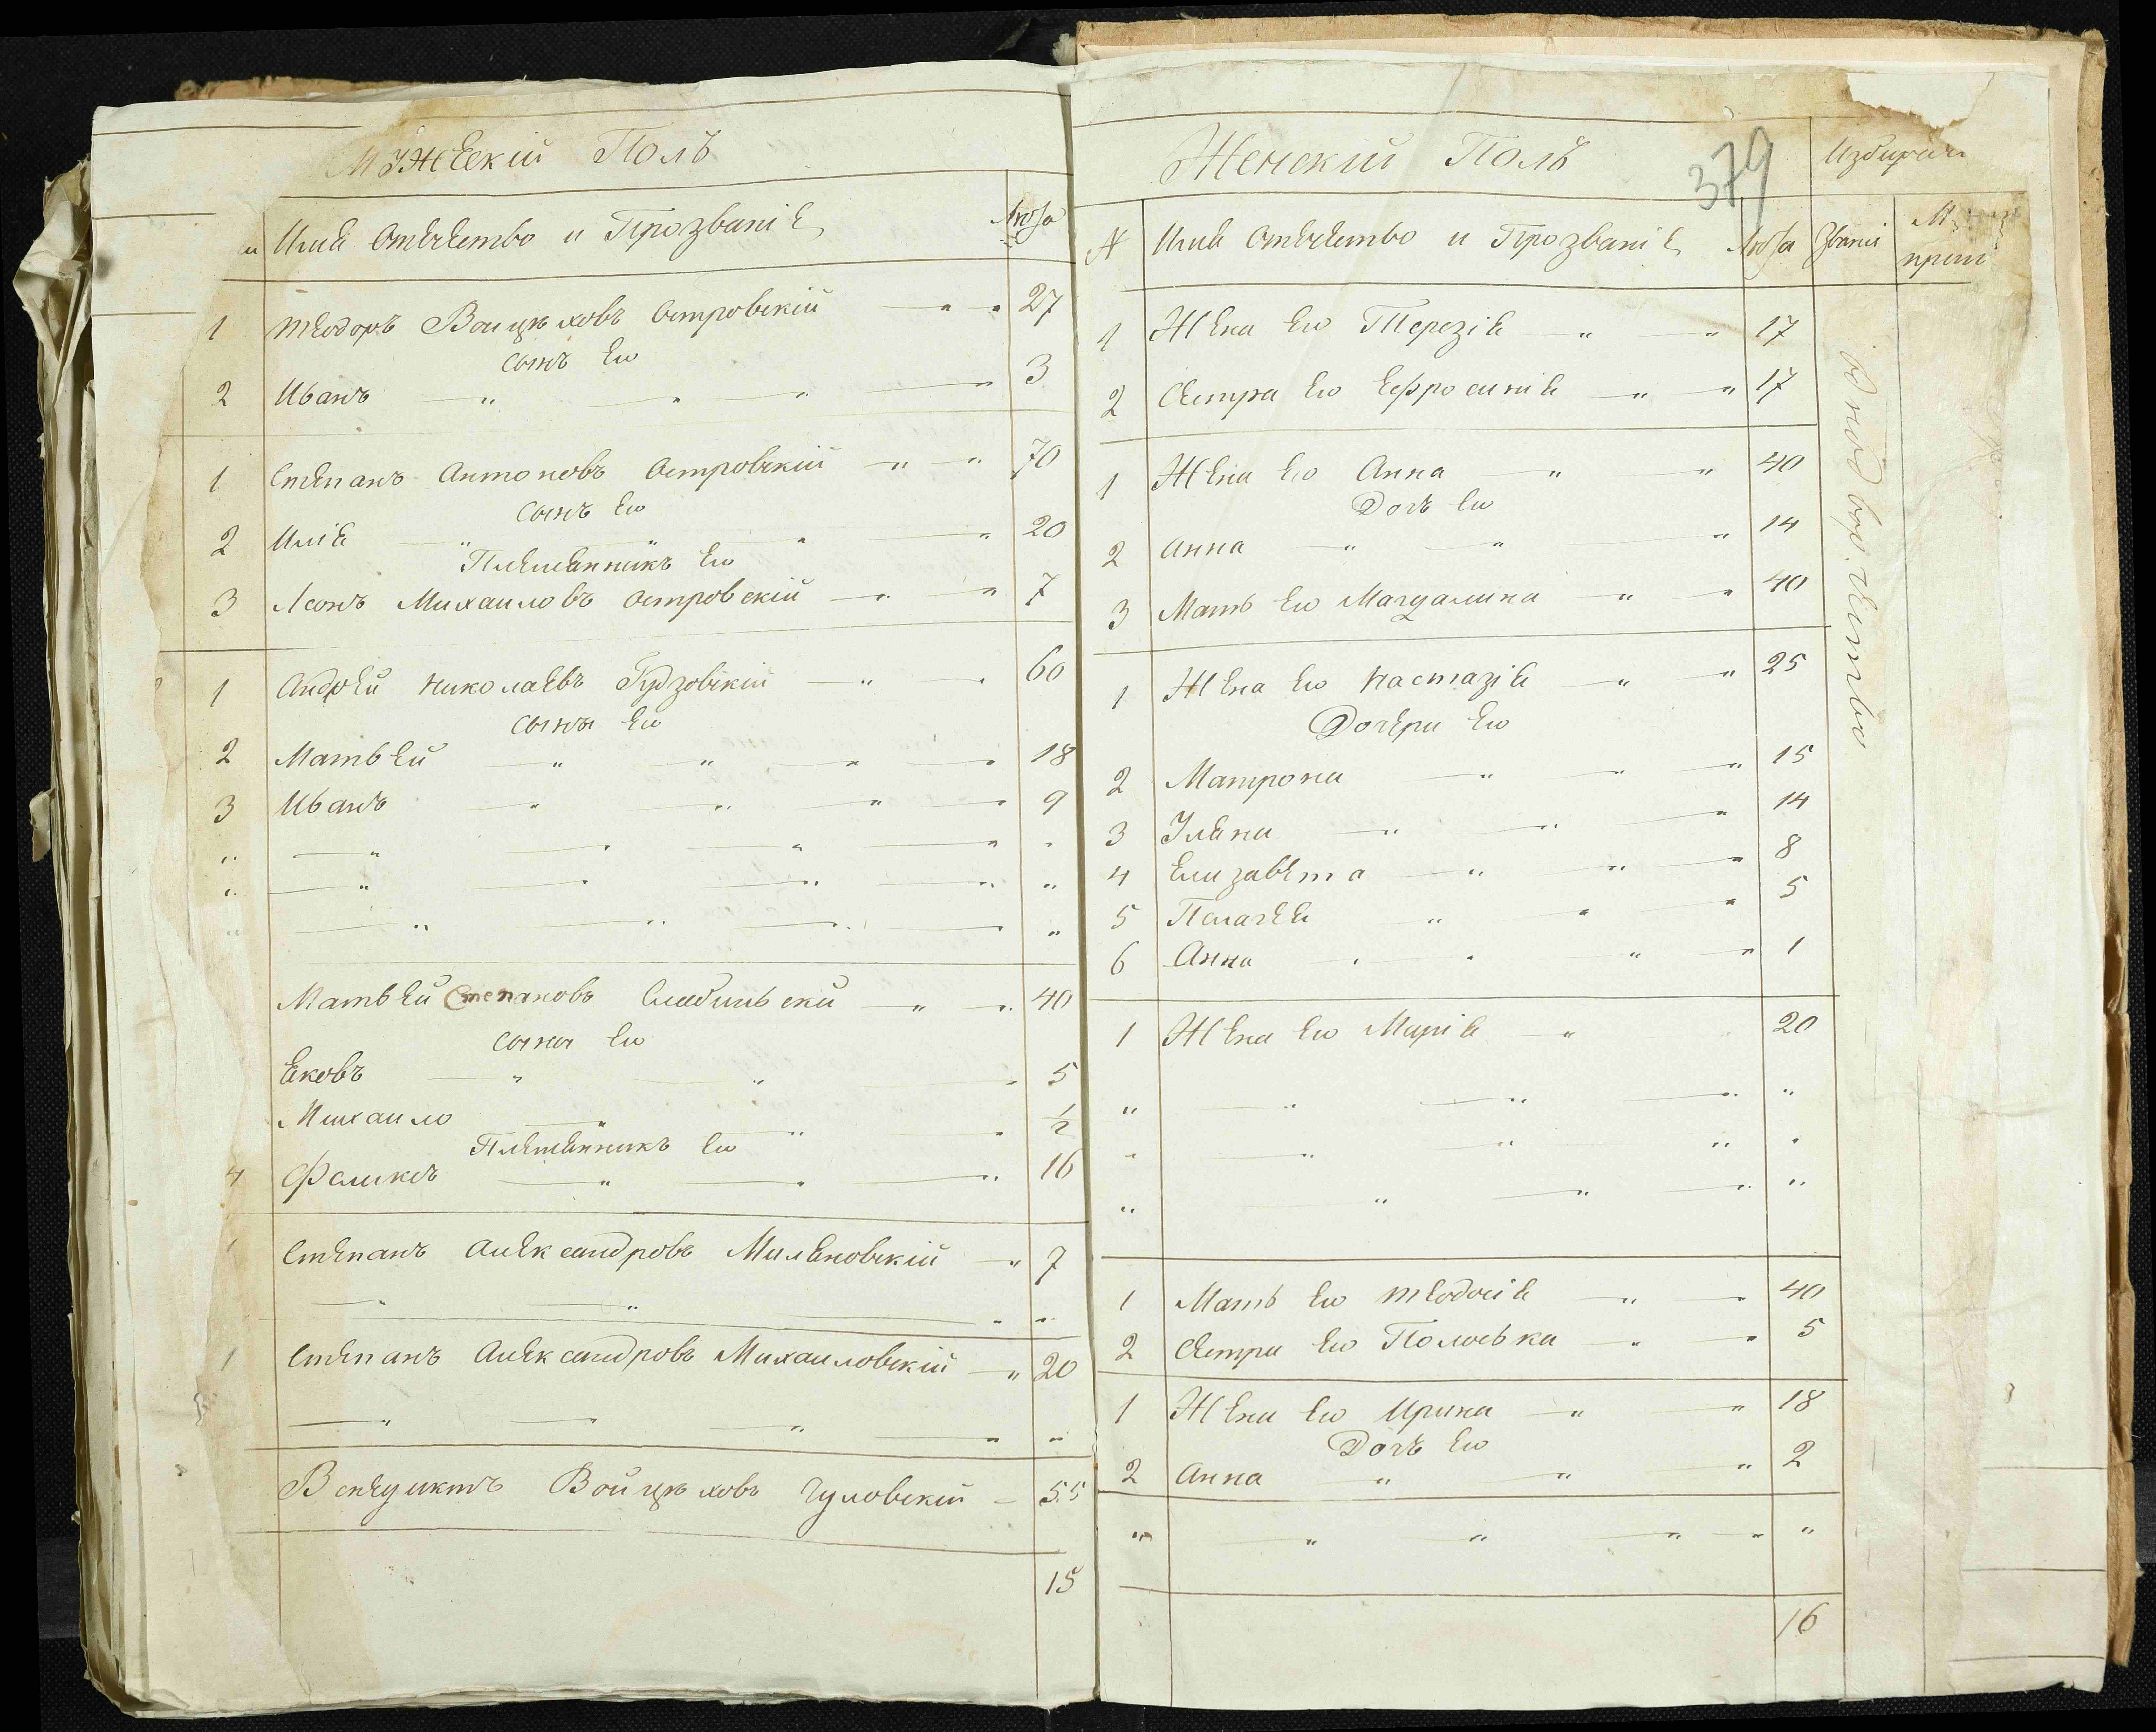 Мужеский Полъ
Имя Отечество и Прозвание Лета
1 Теодоръ Воицеховъ Островский 27
сынъ Ево
2 Иванъ 3
1 Степанъ Антоновъ Островский 70
Сынъ Ево
2 Илие 20
Племенникъ Ево
3 Леонъ Михаиловъ Островский 7
1 Андрей Николаевъ Гудзовский 60
сыны Ево
2 Матвей 18
3 Иванъ 9
Матвей Степановъ 40
сыны Ево
Ековъ 5
Михаило 1/2
Племенникъ Ево
4 Феликсъ 16
1 Степанъ Александровъ Миленовский 7
1 Степанъ Александровъ Михаиловский 20
Венедиктъ Войцеховъ Чуловский 55
15
Женский Полъ
379
№ Имя Отечество и Прозвание Лета Звание
1 Жена Ево Терезие 17
2 Сестра Ево Ефросиние 17
1 Жена Ево Анна 40
Дочъ Ево
2 Анна 14
3 Мать Ево Магдалина 40
1 Жена Ево Настазие 25
Дочери Ево
2 Матрона 15
3 Улена 14
4 Елизавета 8
5 Пелагее 5
6 Анна 1
1 Жена Ево Марие 20
1 Мать Ево Теодосие 40
2 Сестра Ево 5
1 Жена Ево Ирина 18
Дочъ Ево
2 Анна 2
16